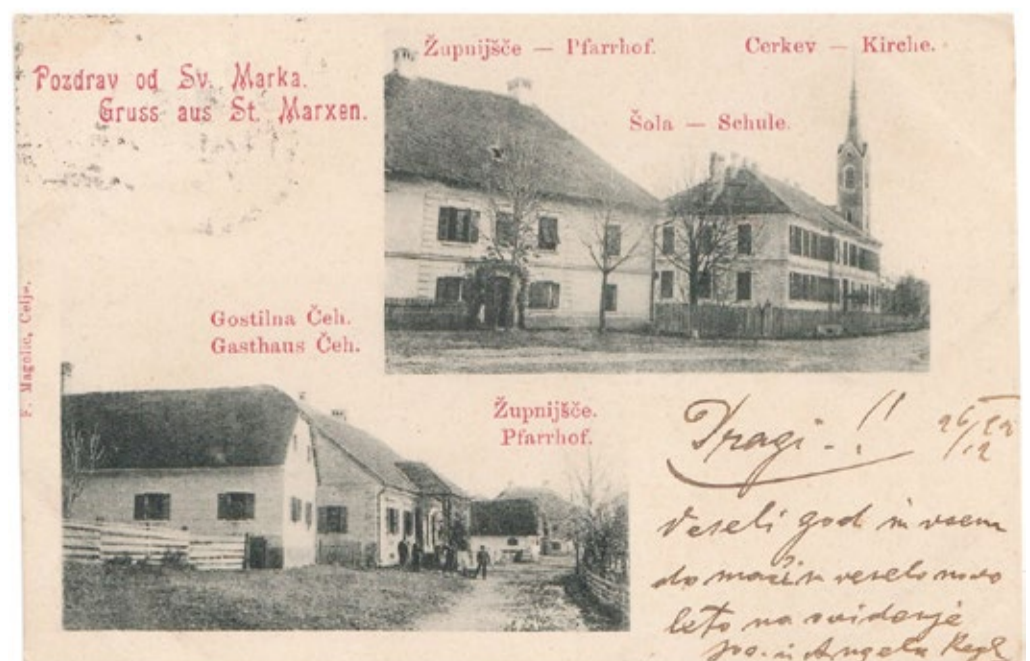 Pozdrav od Sv. Marka.
Gruss aus St. Marxen.
Župnijšče — Pfarrhof.
Cerkev — Kirche.
Šola — Schule.
F. Magolic, Celje.
Gostilna Čeh.
Gasthaus Čeh.
Župnijšče.
Pfarrhof.
Dragi - !!
26/12
Veseli god in vsem
domačim veselo novo
leto na svidenje
in Angela